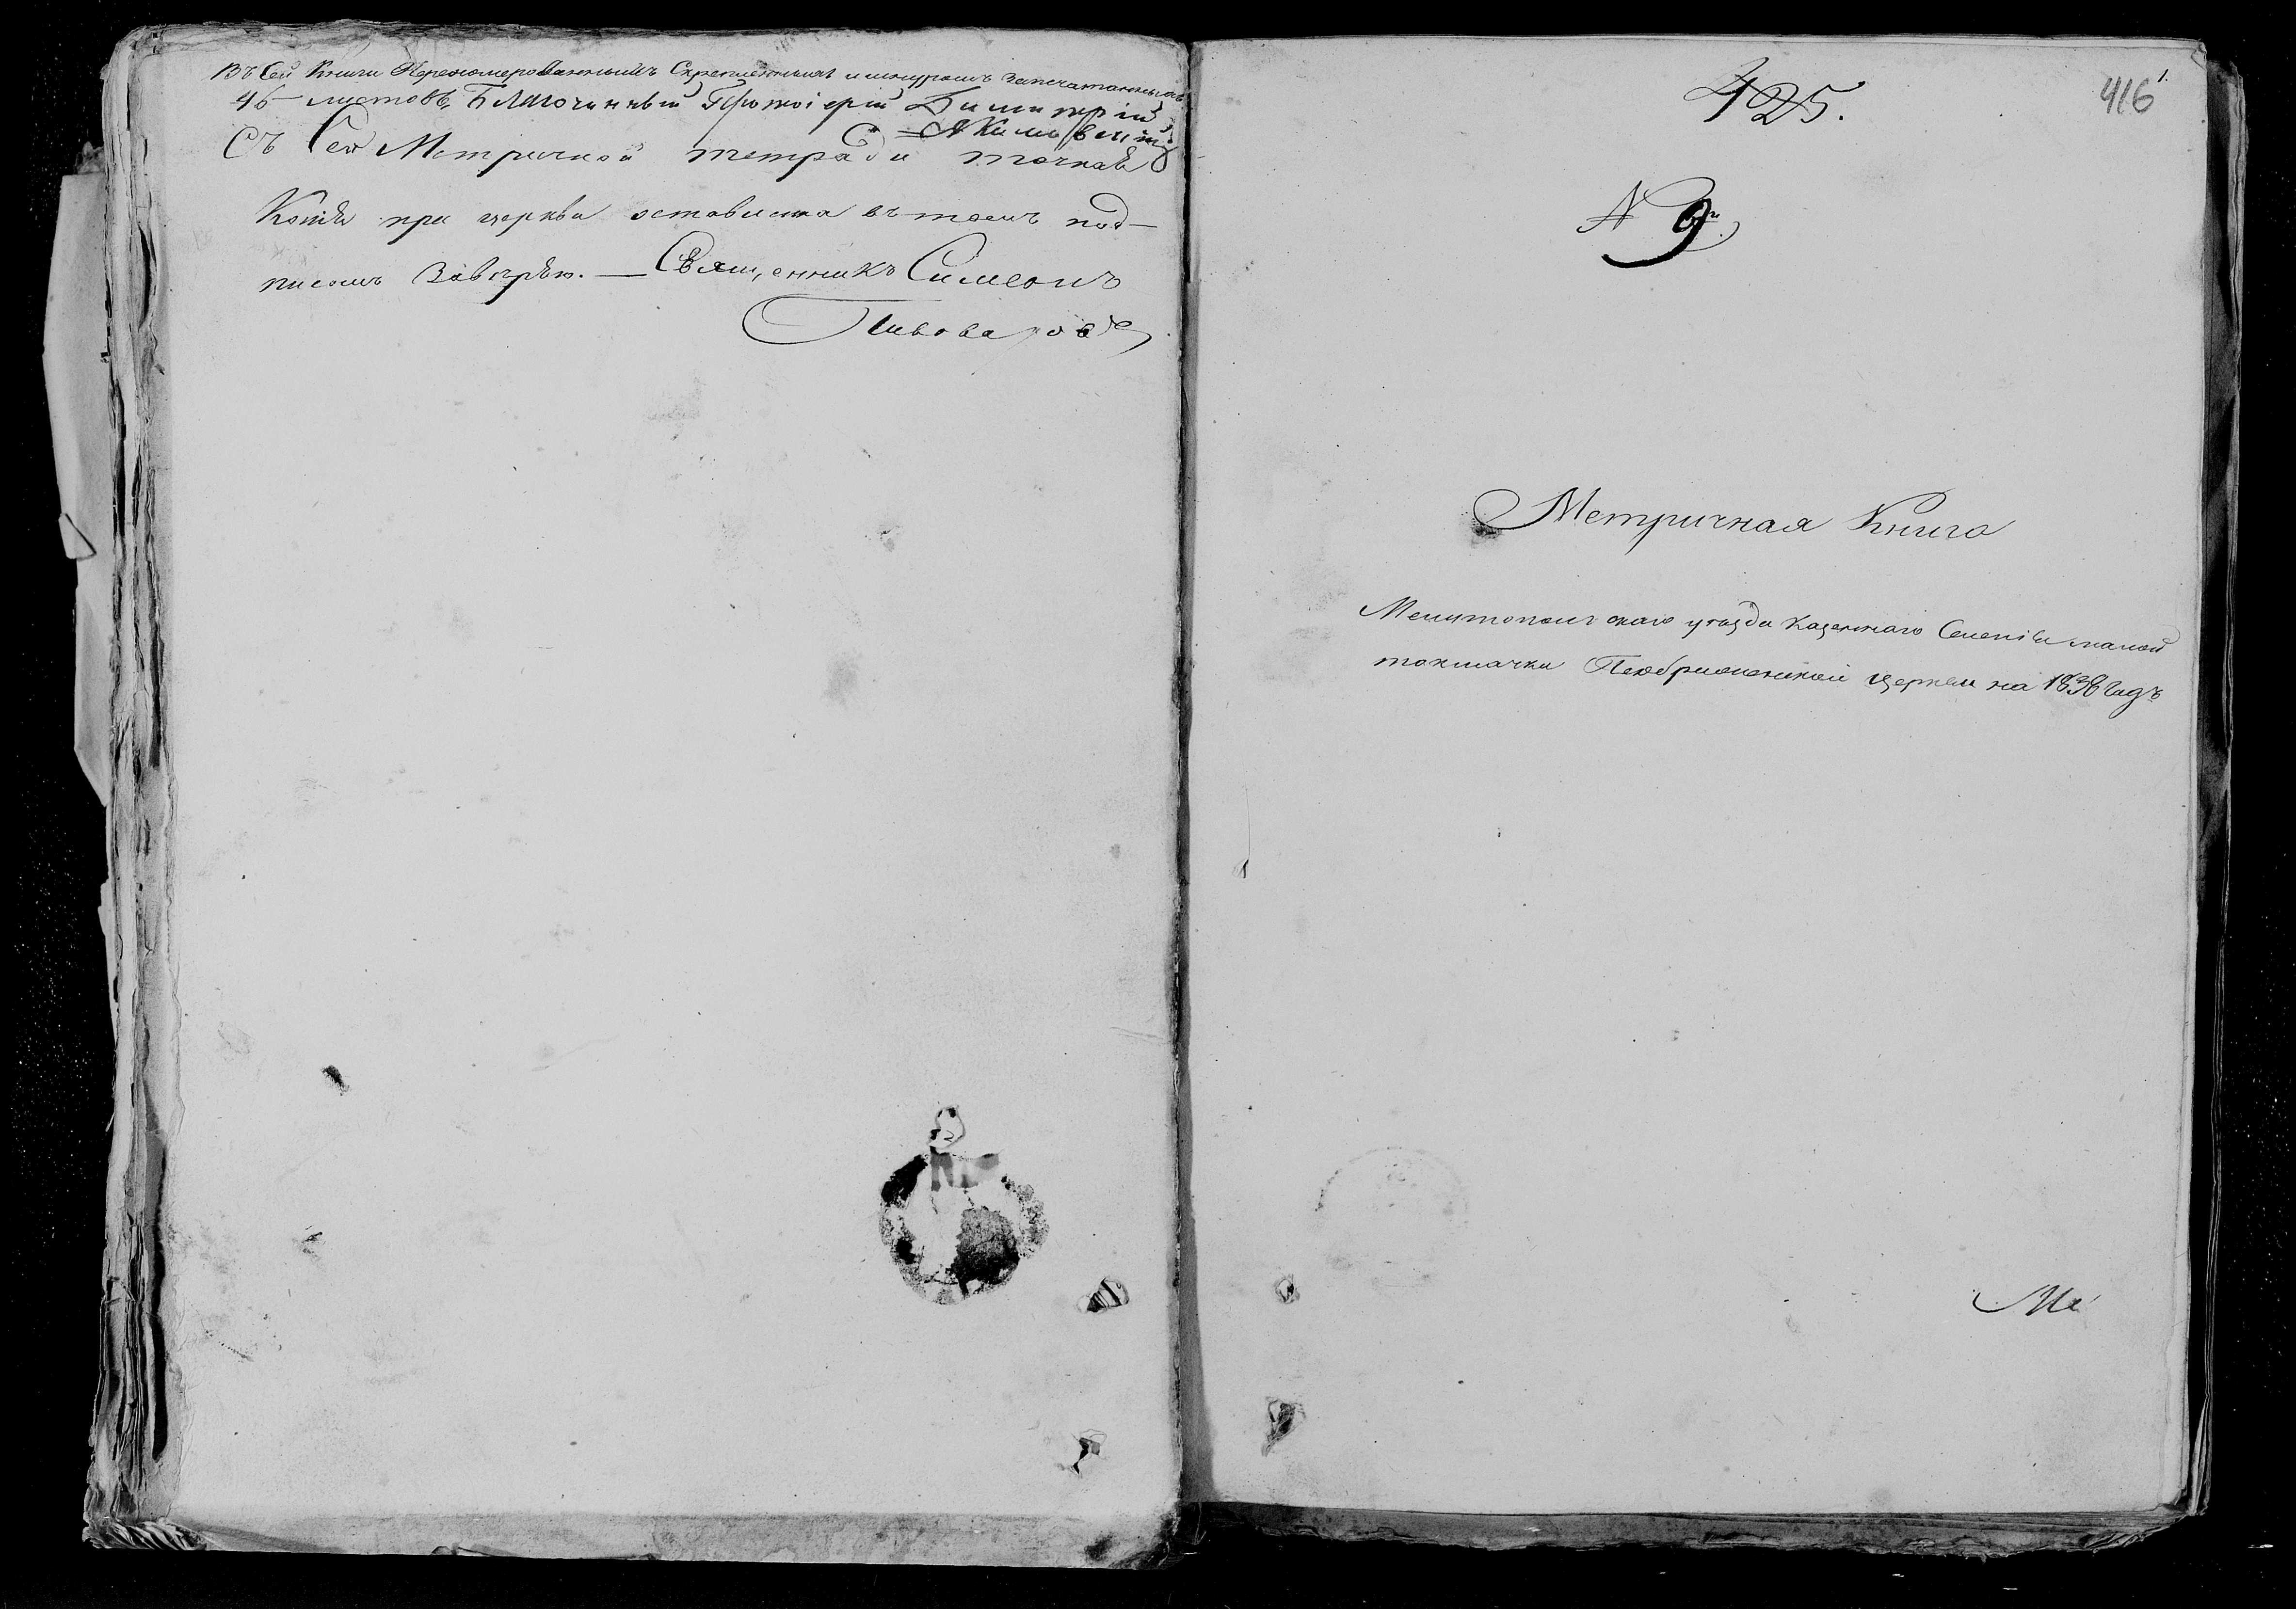 Въ Сей Книги Перенумерованныхъ Скрепленныхъ и шнуромъ Запечатанныхъ
46 листовъ, Благочинный Протоіерей Димитрій
Съ Сей Метричной тетради точная
Копія при церкви оставлена въ томъ под-
писомъ Завѣряю. — Священникъ Симеонъ
Пивоваровъ
425.
416
1.
№ 9й
Метричная Книга
Мелитопольскаго уѣзда казеннаго Селенія малой
токмачки церкви на 1838 Годъ
Ме